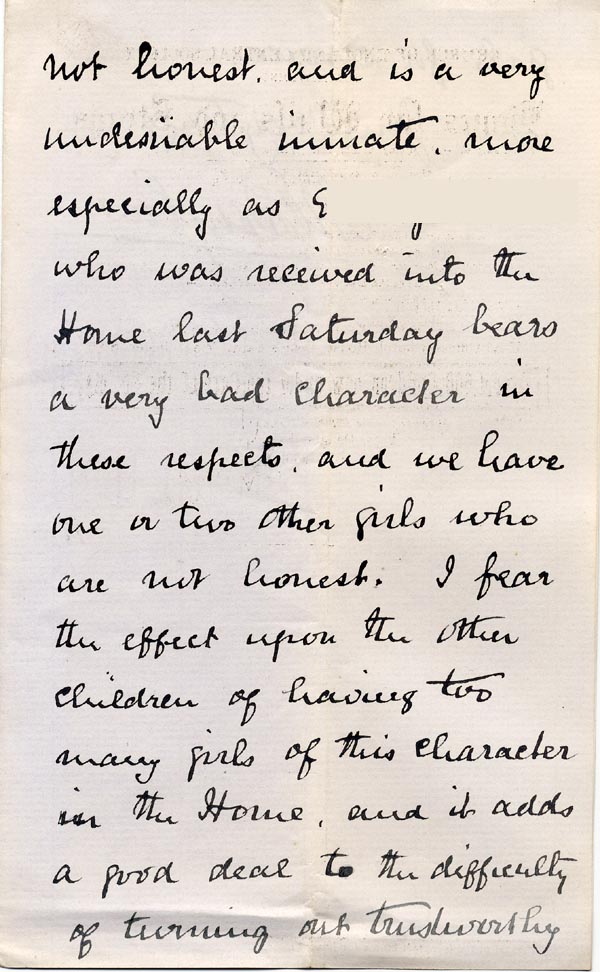 not honest, and is a very
undesirable inmate, more
especially as E
who was received into the
Home last Saturday bears
a very bad character in
these respects, and we have
one or two other girls who
are not honest. I fear
the effect upon the other
children of having too
many girls of this character
in the Home, and it adds
a good deal to the difficulty
of turning out trustworthy